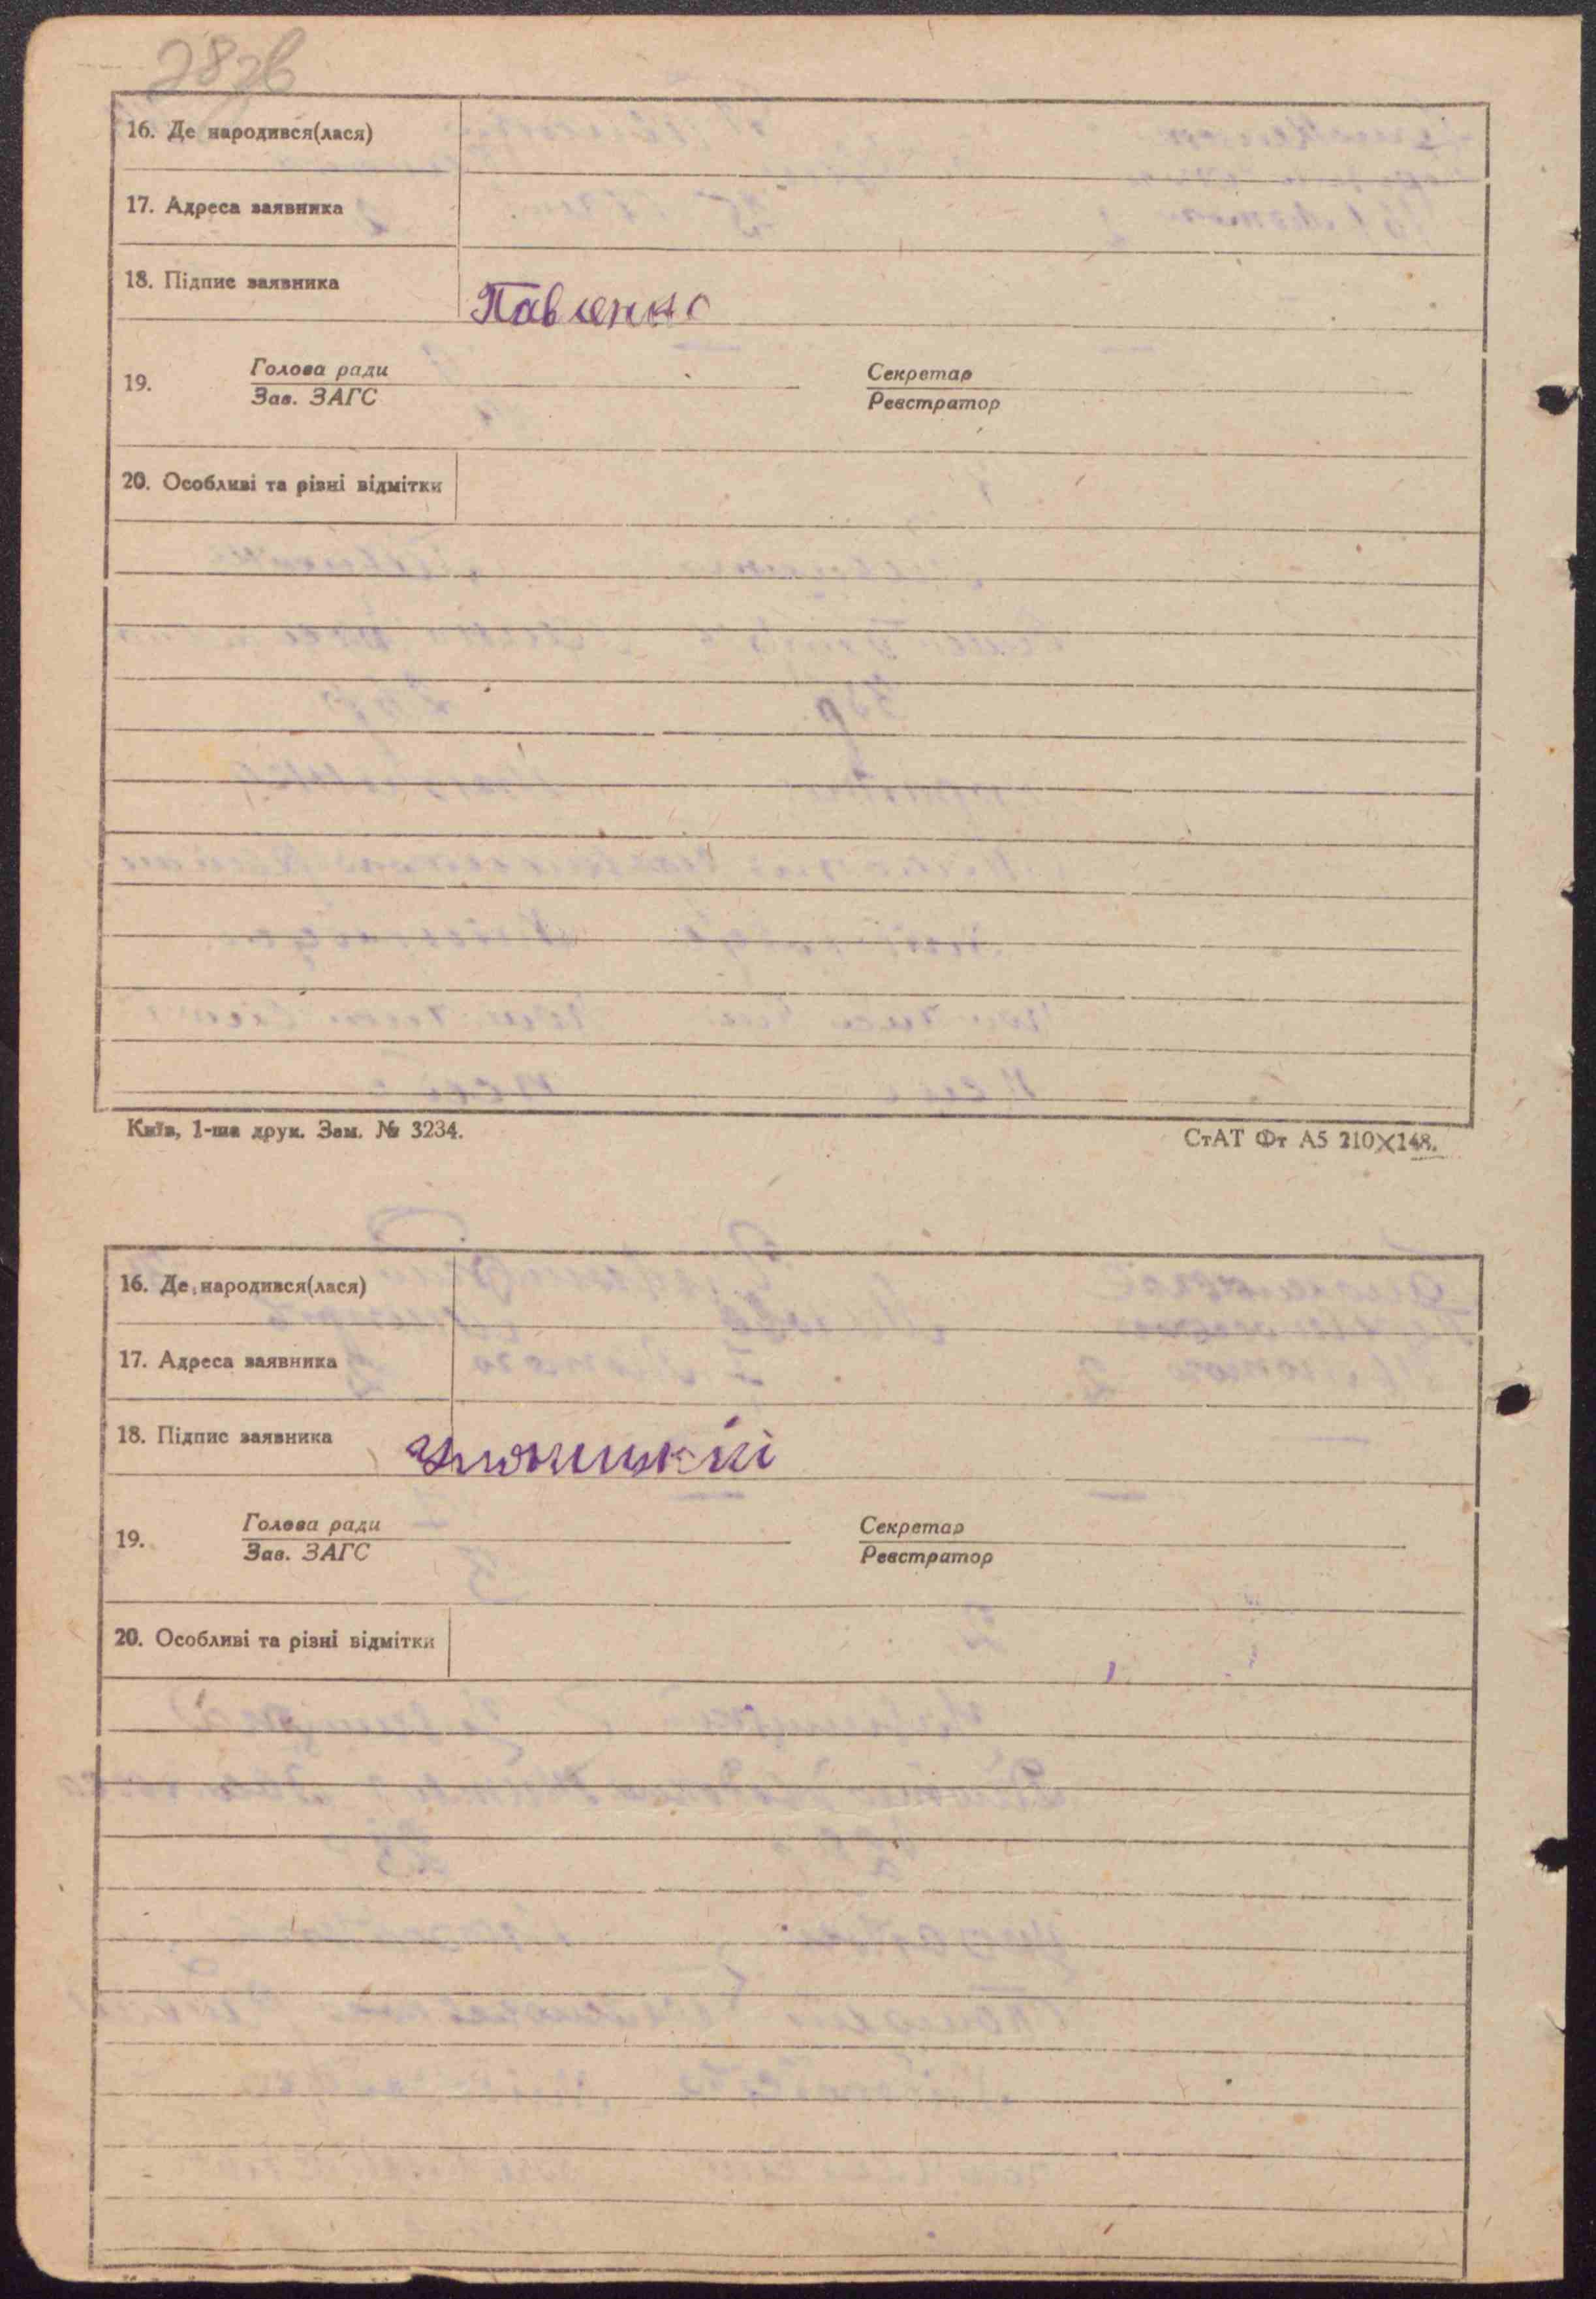 282в
16. Де народився(лася)
17. Адреса заявника
18. Підпис заявника Павленко
19. Голова ради Секретар
Зав. ЗАГС Реєстратор
20. Особливі та різні відмітки
Київ, 1-ша друк. Зам. № 3234. СтАТ Фт А5 210×148.
16. Де народився(лася)
17. Адреса заявника
18. Підпис заявника
19. Голова ради Секретар
Зав. ЗАГС Реєстратор
20. Особливі та різні відмітки